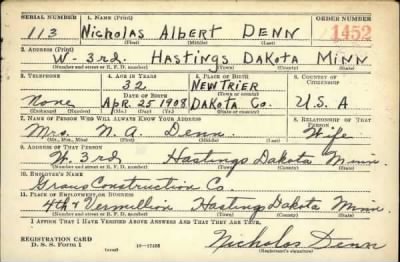 SERIAL NUMBER 1. NAME (Print) ORDER NUMBER
113 Nicholas Albert Denn 1452
(First) (Middle) (Last)
2. ADDRESS (Print)
W - 3rd. Hastings Dakota Minn
(Number and street or R. F. D. number) (Town) (County) (State)
3. TELEPHONE 4. AGE IN YEARS 5. PLACE OF BIRTH 6. COUNTRY OF CITIZENSHIP
32 New Trier
DATE OF BIRTH (Town or county)
None Apr. 25 1908 Dakota Co. U.S.A
(Exchange) (Number) (Mo.) (Day) (Yr.) (State or country)
7. NAME OF PERSON WHO WILL ALWAYS KNOW YOUR ADDRESS 8. RELATIONSHIP OF THAT PERSON
Mrs. N. A. Denn Wife
(Mr., Mrs., Miss) (First) (Middle) (Last)
9. ADDRESS OF THAT PERSON
W. 3rd Hastings Dakota Minn.
(Number and street or R. F. D. number) (Town) (County) (State)
10. EMPLOYER'S NAME
Construction Co.
11. PLACE OF EMPLOYMENT OR BUSINESS
4th & Vermillion Hastings Dakota Minn.
(Number and street or R. F. D. number) (Town) (County) (State)
I AFFIRM THAT I HAVE VERIFIED ABOVE ANSWERS AND THAT THEY ARE TRUE.
REGISTRATION CARD
D. S. S. FORM 1 16—17105 Nicholas Denn
(Registrant's signature)